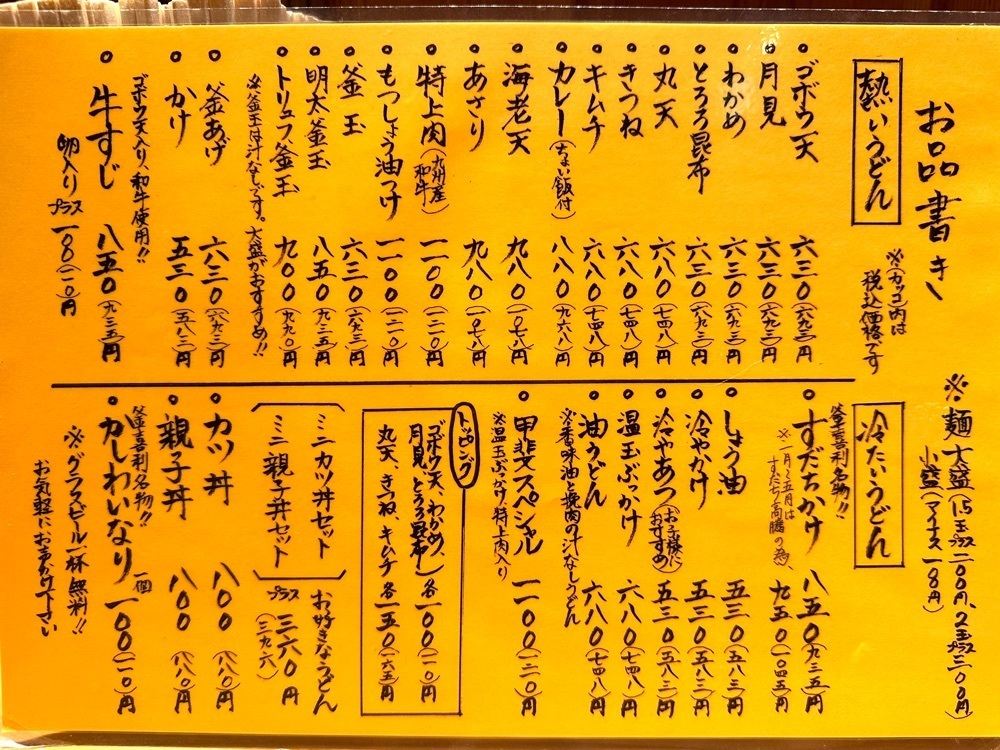 お品書き
※(カッコ)内は
税込価格です
※麺 大盛(1.5玉プラス一〇〇円、2玉プラス二〇〇円)
小盛(マイナス一〇〇円)
熱いうどん
ゴボウ天 六三〇(六九三)円
月見 六三〇(六九三)円
わかめ 六三〇(六九三)円
とろろ昆布 六三〇(六九三)円
丸天 六八〇(七四八)円
きつね 六八〇(七四八)円
キムチ 六八〇(七四八)円
カレー(ちょい飯付) 八八〇(九六八)円
海老天 九八〇(一〇七八)円
あさり 九八〇(一〇七八)円
特上肉(九州産和牛) 一一〇〇(一二一〇)円
もつしょう油つけ 一一〇〇(一二一〇)円
釜玉 六三〇(六九三)円
明太釜玉 八五〇(九三五)円
トリュフ釜玉 九〇〇(九九〇)円
※釜玉は汁なしです。大盛がおすすめ!!
釜あげ 六三〇(六九三)円
かけ 五三〇(五八三)円
ゴボウ天入り和牛使用!!
牛すじ 八五〇(九三五)円
卵入りプラス一〇〇(一一〇)円
冷たいうどん
釜喜利名物!!
すだちかけ 八五〇(九三五)円
※一月〜五月は
すだち高騰の為、九五〇(一〇四五)円
しょう油 五三〇(五八三)円
冷やかけ 五三〇(五八三)円
冷やあつ(お子様におすすめ) 五三〇(五八三)円
温玉ぶっかけ 六八〇(七四八)円
油うどん 六八〇(七四八)円
※香味油と挽肉の汁なしうどん
甲斐スペシャル 一一〇〇(一二一〇)円
※温玉ぶっかけ特上肉入り
トッピング
ゴボウ天、わかめ、
月見、とろろ昆布 各一〇〇(一一〇)円
丸天、きつね、キムチ 各一五〇(一六五)円
ミニカツ丼セット
ミニ親子丼セット
お好きなうどん
プラス三六〇円
(三九六)
カツ丼 八〇〇(八八〇)円
親子丼 八〇〇(八八〇)円
釜喜利名物!!
かしわいなり 一個 一〇〇(一一〇)円
※グラスビール一杯無料!!
お気軽にお声かけ下さい